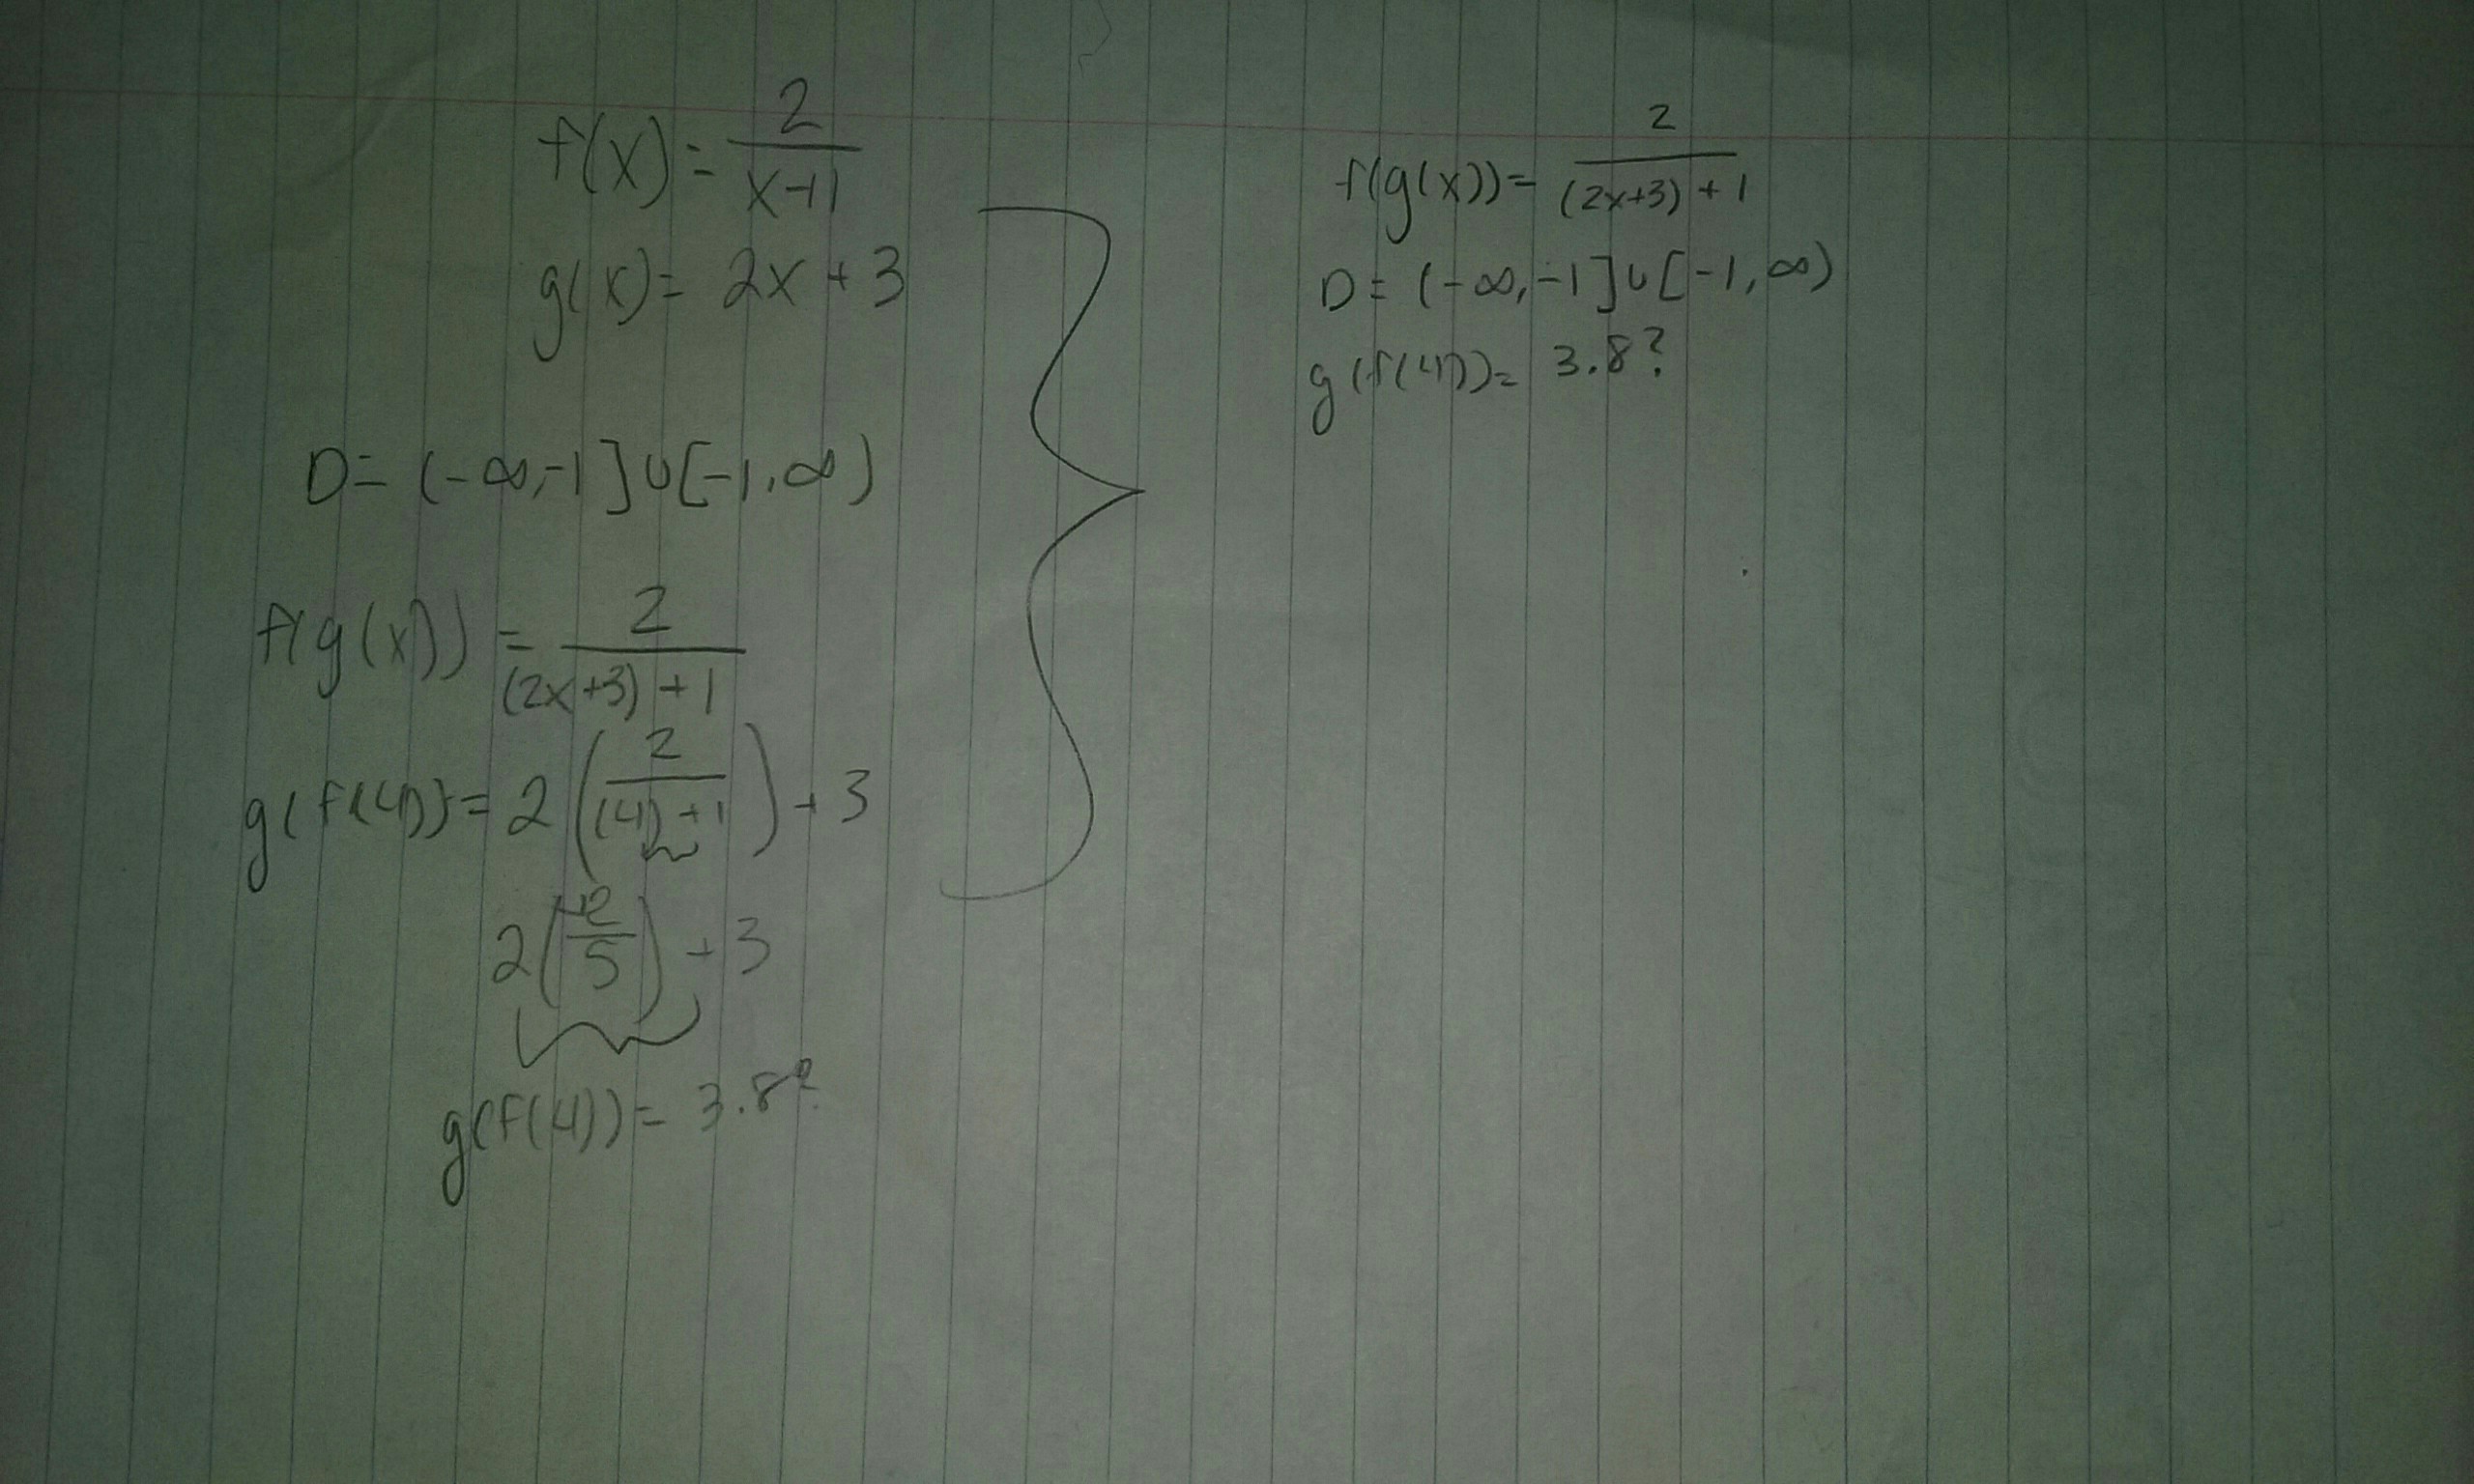 f(x) = 2/(x+1)
g(x) = 2x + 3
D = (-∞, -1] ∪ [-1, ∞)
f(g(x)) = 2/((2x+3) + 1)
g(f(4)) = 2(2/((4)+1)) + 3
2(2/5) + 3
g(f(4)) = 3.8?
f(g(x)) = 2/((2x+3) + 1)
D = (-∞, -1] ∪ [-1, ∞)
g(f(4)) = 3.8?